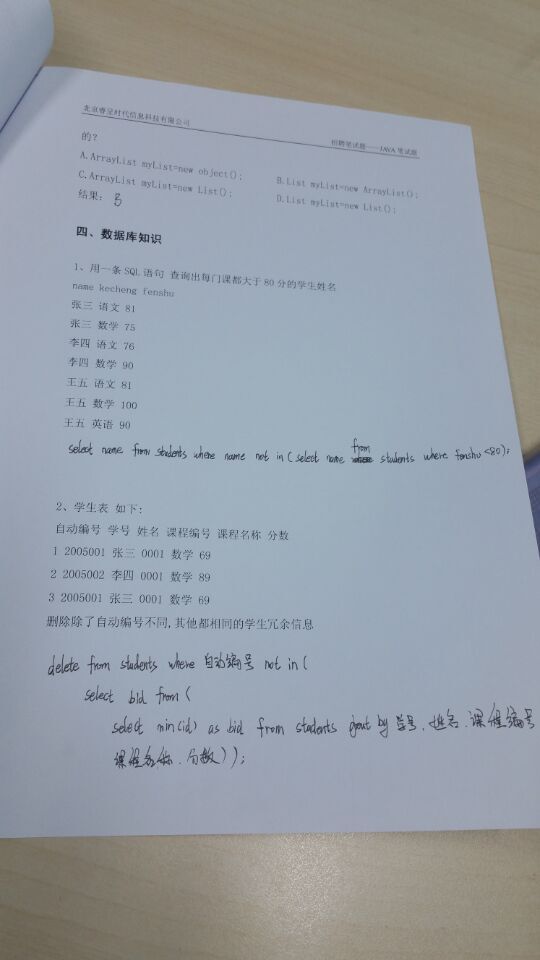 北京睿呈时代信息科技有限公司 招聘笔试题——JAVA 笔试题
的?
A.ArrayList myList=new object(); B.List myList=new ArrayList();
C.ArrayList myList=new List(); D.List myList=new List();
结果: B
四、数据库知识
1、用一条 SQL 语句 查询出每门课都大于 80 分的学生姓名
name kecheng fenshu
张三 语文 81
张三 数学 75
李四 语文 76
李四 数学 90
王五 语文 81
王五 数学 100
王五 英语 90
select name from students where name not in (select name from students where fenshu <80);
2、学生表 如下:
自动编号 学号 姓名 课程编号 课程名称 分数
1 2005001 张三 0001 数学 69
2 2005002 李四 0001 数学 89
3 2005001 张三 0001 数学 69
删除除了自动编号不同,其他都相同的学生冗余信息
delete from students where 自动编号 not in (
select bid from (
select min(id) as bid from students gout by 学号、姓名、课程编号
课程名称、分数));